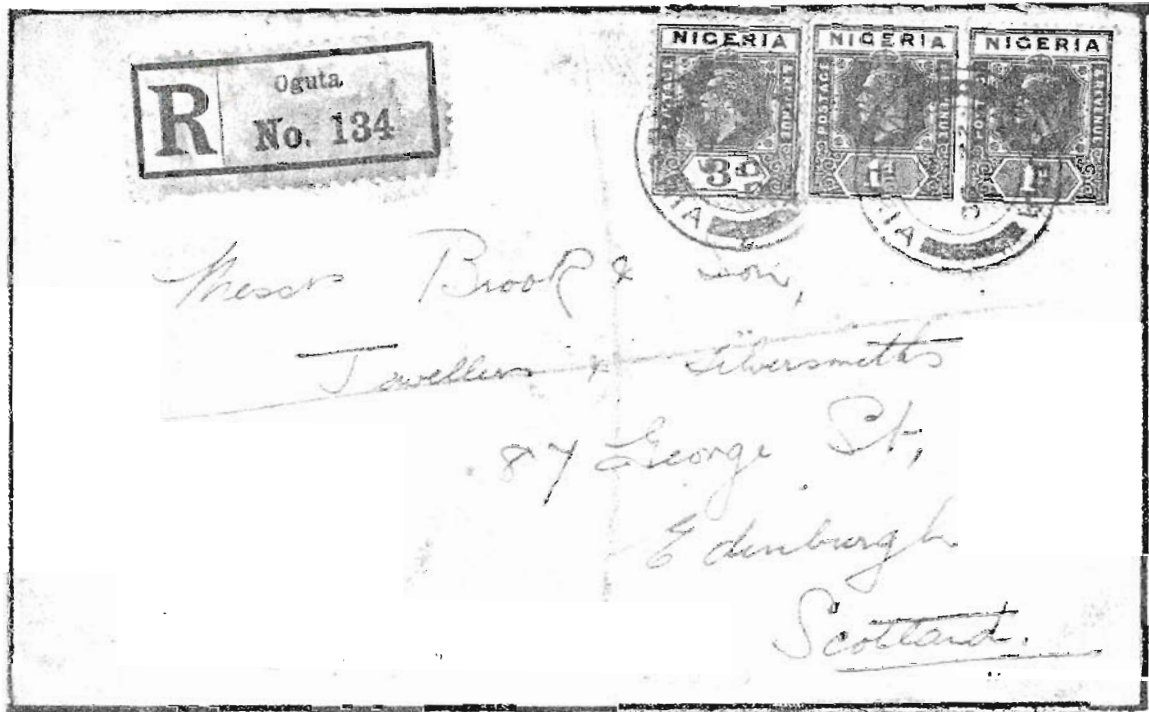 R
Oguta
No. 134
NIGERIA NIGERIA NIGERIA
POSTAGE REVENUE POSTAGE REVENUE POSTAGE REVENUE
3d 1d 1d
Messrs Brook & Son,
Jewellers & Silversmiths
87 George St,
Edinburgh
Scotland.